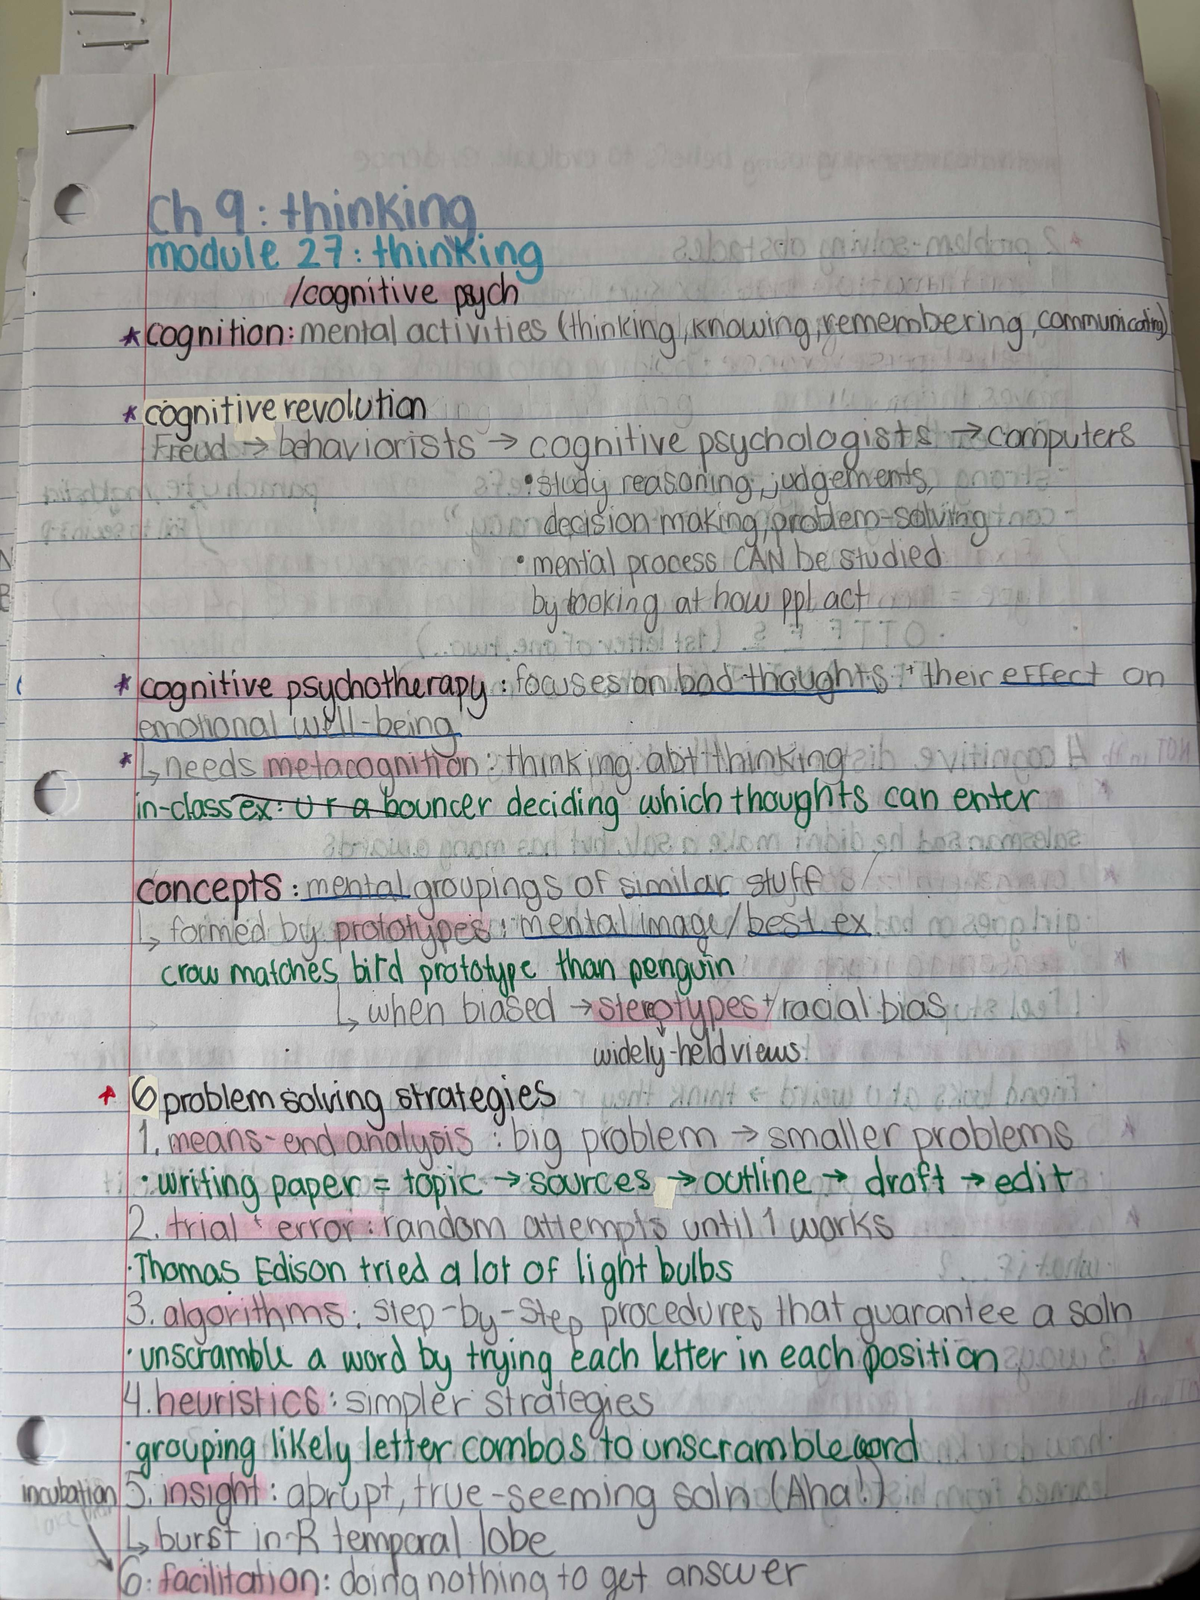 Ch 9: thinking
module 27: thinking
/cognitive psych
* cognition: mental activities (thinking, knowing, remembering, communicating)
* cognitive revolution
Freud → behaviorists → cognitive psychologists → computers
• study reasoning, judgements,
decision-making, problem-solving
• mental process CAN be studied
by looking at how ppl act
* cognitive psychotherapy: focuses on bad thoughts + their effect on
emotional well-being
* ↳ needs metacognition: thinking abt thinking
in-class ex: ur a bouncer deciding which thoughts can enter
concepts: mental groupings of similar stuff
↳ formed by prototypes: mental image/best ex
crow matches bird prototype than penguin
↳ when biased → stereotypes + racial bias
widely-held views
* 6 problem solving strategies
1. means-end analysis: big problem → smaller problems
• writing paper = topic → sources → outline → draft → edit
2. trial + error: random attempts until 1 works
• Thomas Edison tried a lot of light bulbs
3. algorithms: step-by-step procedures that guarantee a soln
• unscramble a word by trying each letter in each position
4. heuristics: simpler strategies
• grouping likely letter combos to unscramble word
incubation 5. insight: abrupt, true-seeming soln (Aha!)
↳ burst in R temporal lobe
6. facilitation: doing nothing to get answer